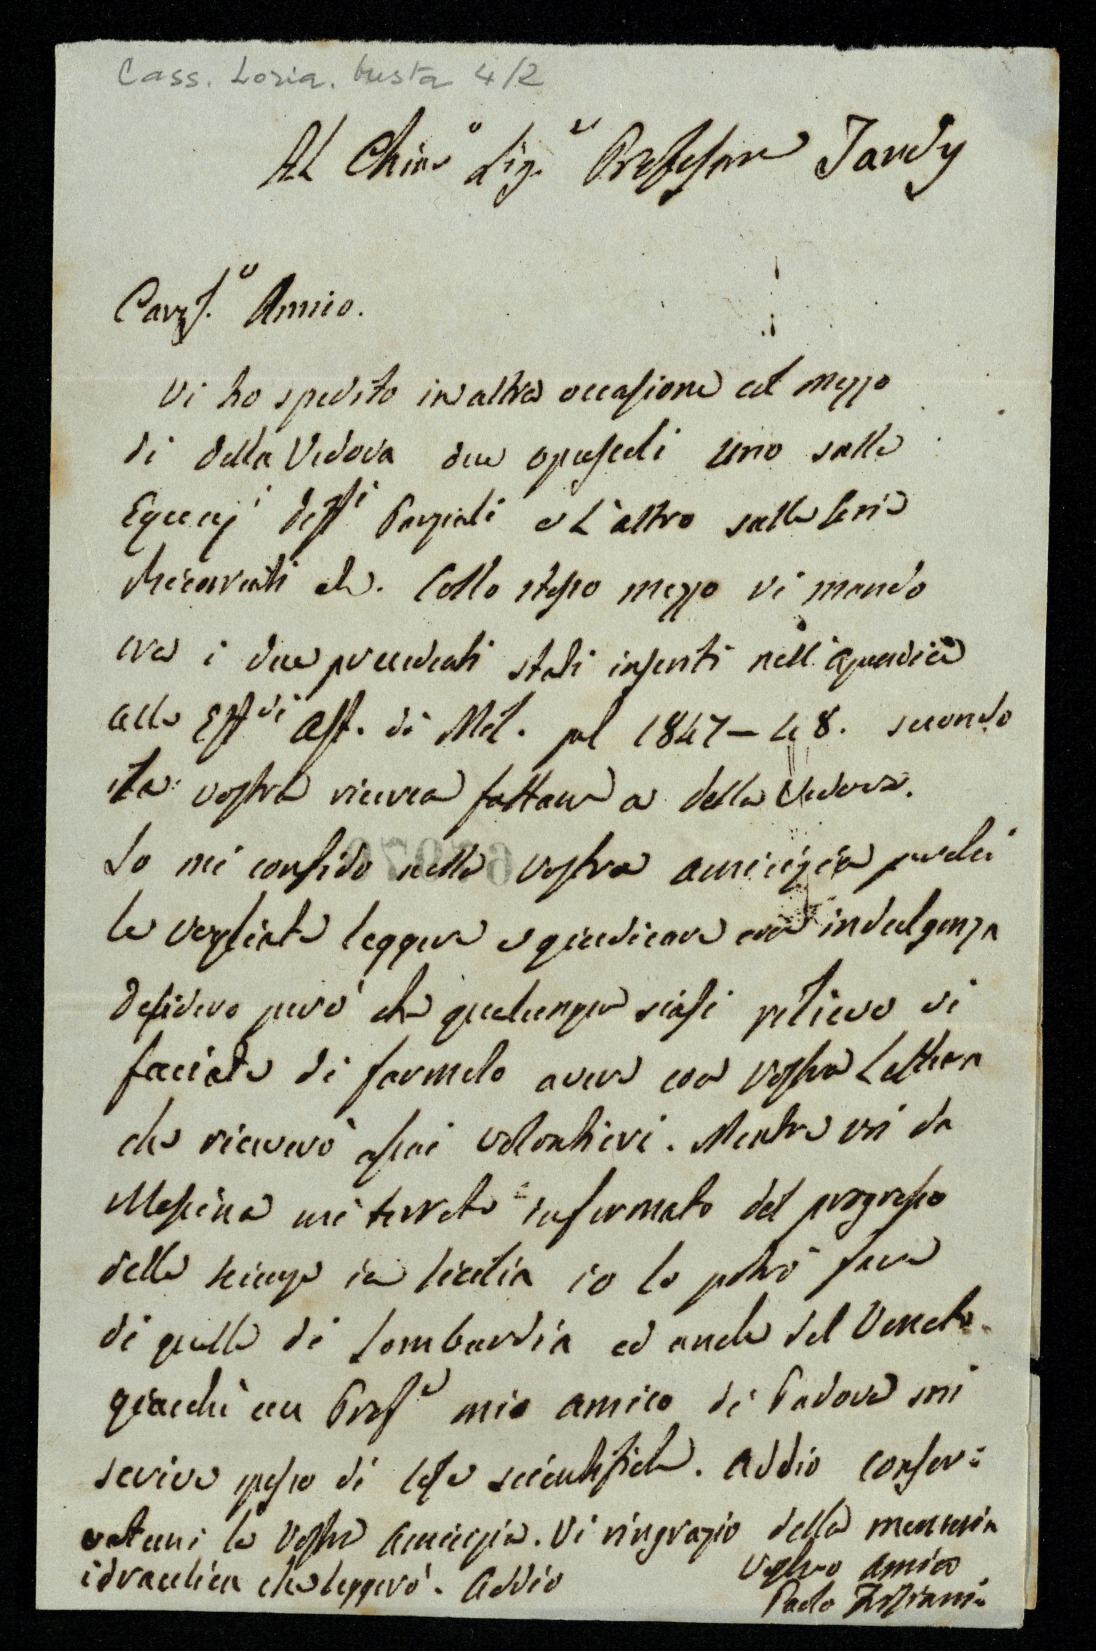 Cass. Loria. busta 4/2
Al Chiar.o Sig.r Professore Tardy
Cariss.o Amico.
Vi ho spedito in altra occasione col mezzo
di della Vedova due opuscoli uno sulle
Equaz.i Diff.li Parziali e L'altro sulle Serie
Ricorrenti etc. Collo stesso mezzo vi mando
ora i due precedenti stati inseriti nell'apendice
alle Eff.di Ast. di Mil. pel 1847-48. secondo
la vostra ricerca fattane a della Vedova.
Io mi confido nella vostra amicizia perchè
le vogliate leggere e giudicare con indulgenza
desidero però che qualunque siasi rilievo vi
facciate di farmelo avere con vostra Lettera
che riceverò assai volontieri. Mentre voi da
Messina mi terrete informato del progresso
delle scienze in Sicilia io lo potrò fare
di quelle di Lombardia ed anche del Veneto
giacchè un Prof.e mio amico di Padova mi
scrive spesso di cose scientifiche. Addio conser=
vatemi la Vostra amicizia. Vi ringrazio della memoria
idraulica che leggerò. Addio
Vostro Amico
Paolo